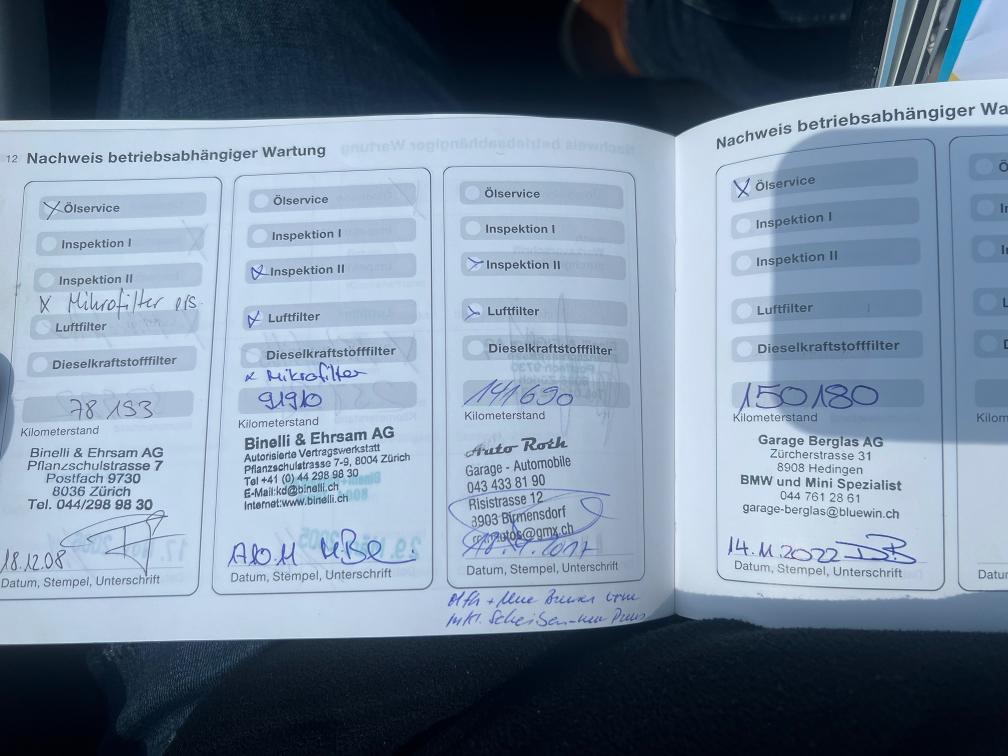 12 Nachweis betriebsabhängiger Wartung
Ölservice
Inspektion I
Inspektion II
x Mikrofilter ers.
Luftfilter
Dieselkraftstofffilter
78 193
Kilometerstand
Binelli & Ehrsam AG
Pflanzschulstrasse 7
Postfach 9730
8036 Zürich
Tel. 044/298 98 30
18.12.08
Datum, Stempel, Unterschrift
Ölservice
Inspektion I
Inspektion II
Luftfilter
Dieselkraftstofffilter
x Mikrofilter
91910
Kilometerstand
Binelli & Ehrsam AG
Autorisierte Vertragswerkstatt
Pflanzschulstrasse 7-9, 8004 Zürich
Tel +41 (0) 44 298 98 30
E-Mail:kd@binelli.ch
Internet:www.binelli.ch
Datum, Stempel, Unterschrift
Ölservice
Inspektion I
Inspektion II
Luftfilter
Dieselkraftstofffilter
141690
Kilometerstand
Auto Roth
Garage - Automobile
043 433 81 90
Risistrasse 12
8903 Birmensdorf
@gmx.ch
Datum, Stempel, Unterschrift
+ Neue
inkl. Scheiben
Nachweis betriebsabhängiger Wa
Ölservice
Inspektion I
Inspektion II
Luftfilter
Dieselkraftstofffilter
150180
Kilometerstand
Garage Berglas AG
Zürcherstrasse 31
8908 Hedingen
BMW und Mini Spezialist
044 761 28 61
garage-berglas@bluewin.ch
14.11.2022
Datum, Stempel, Unterschrift
Kilom
Datum